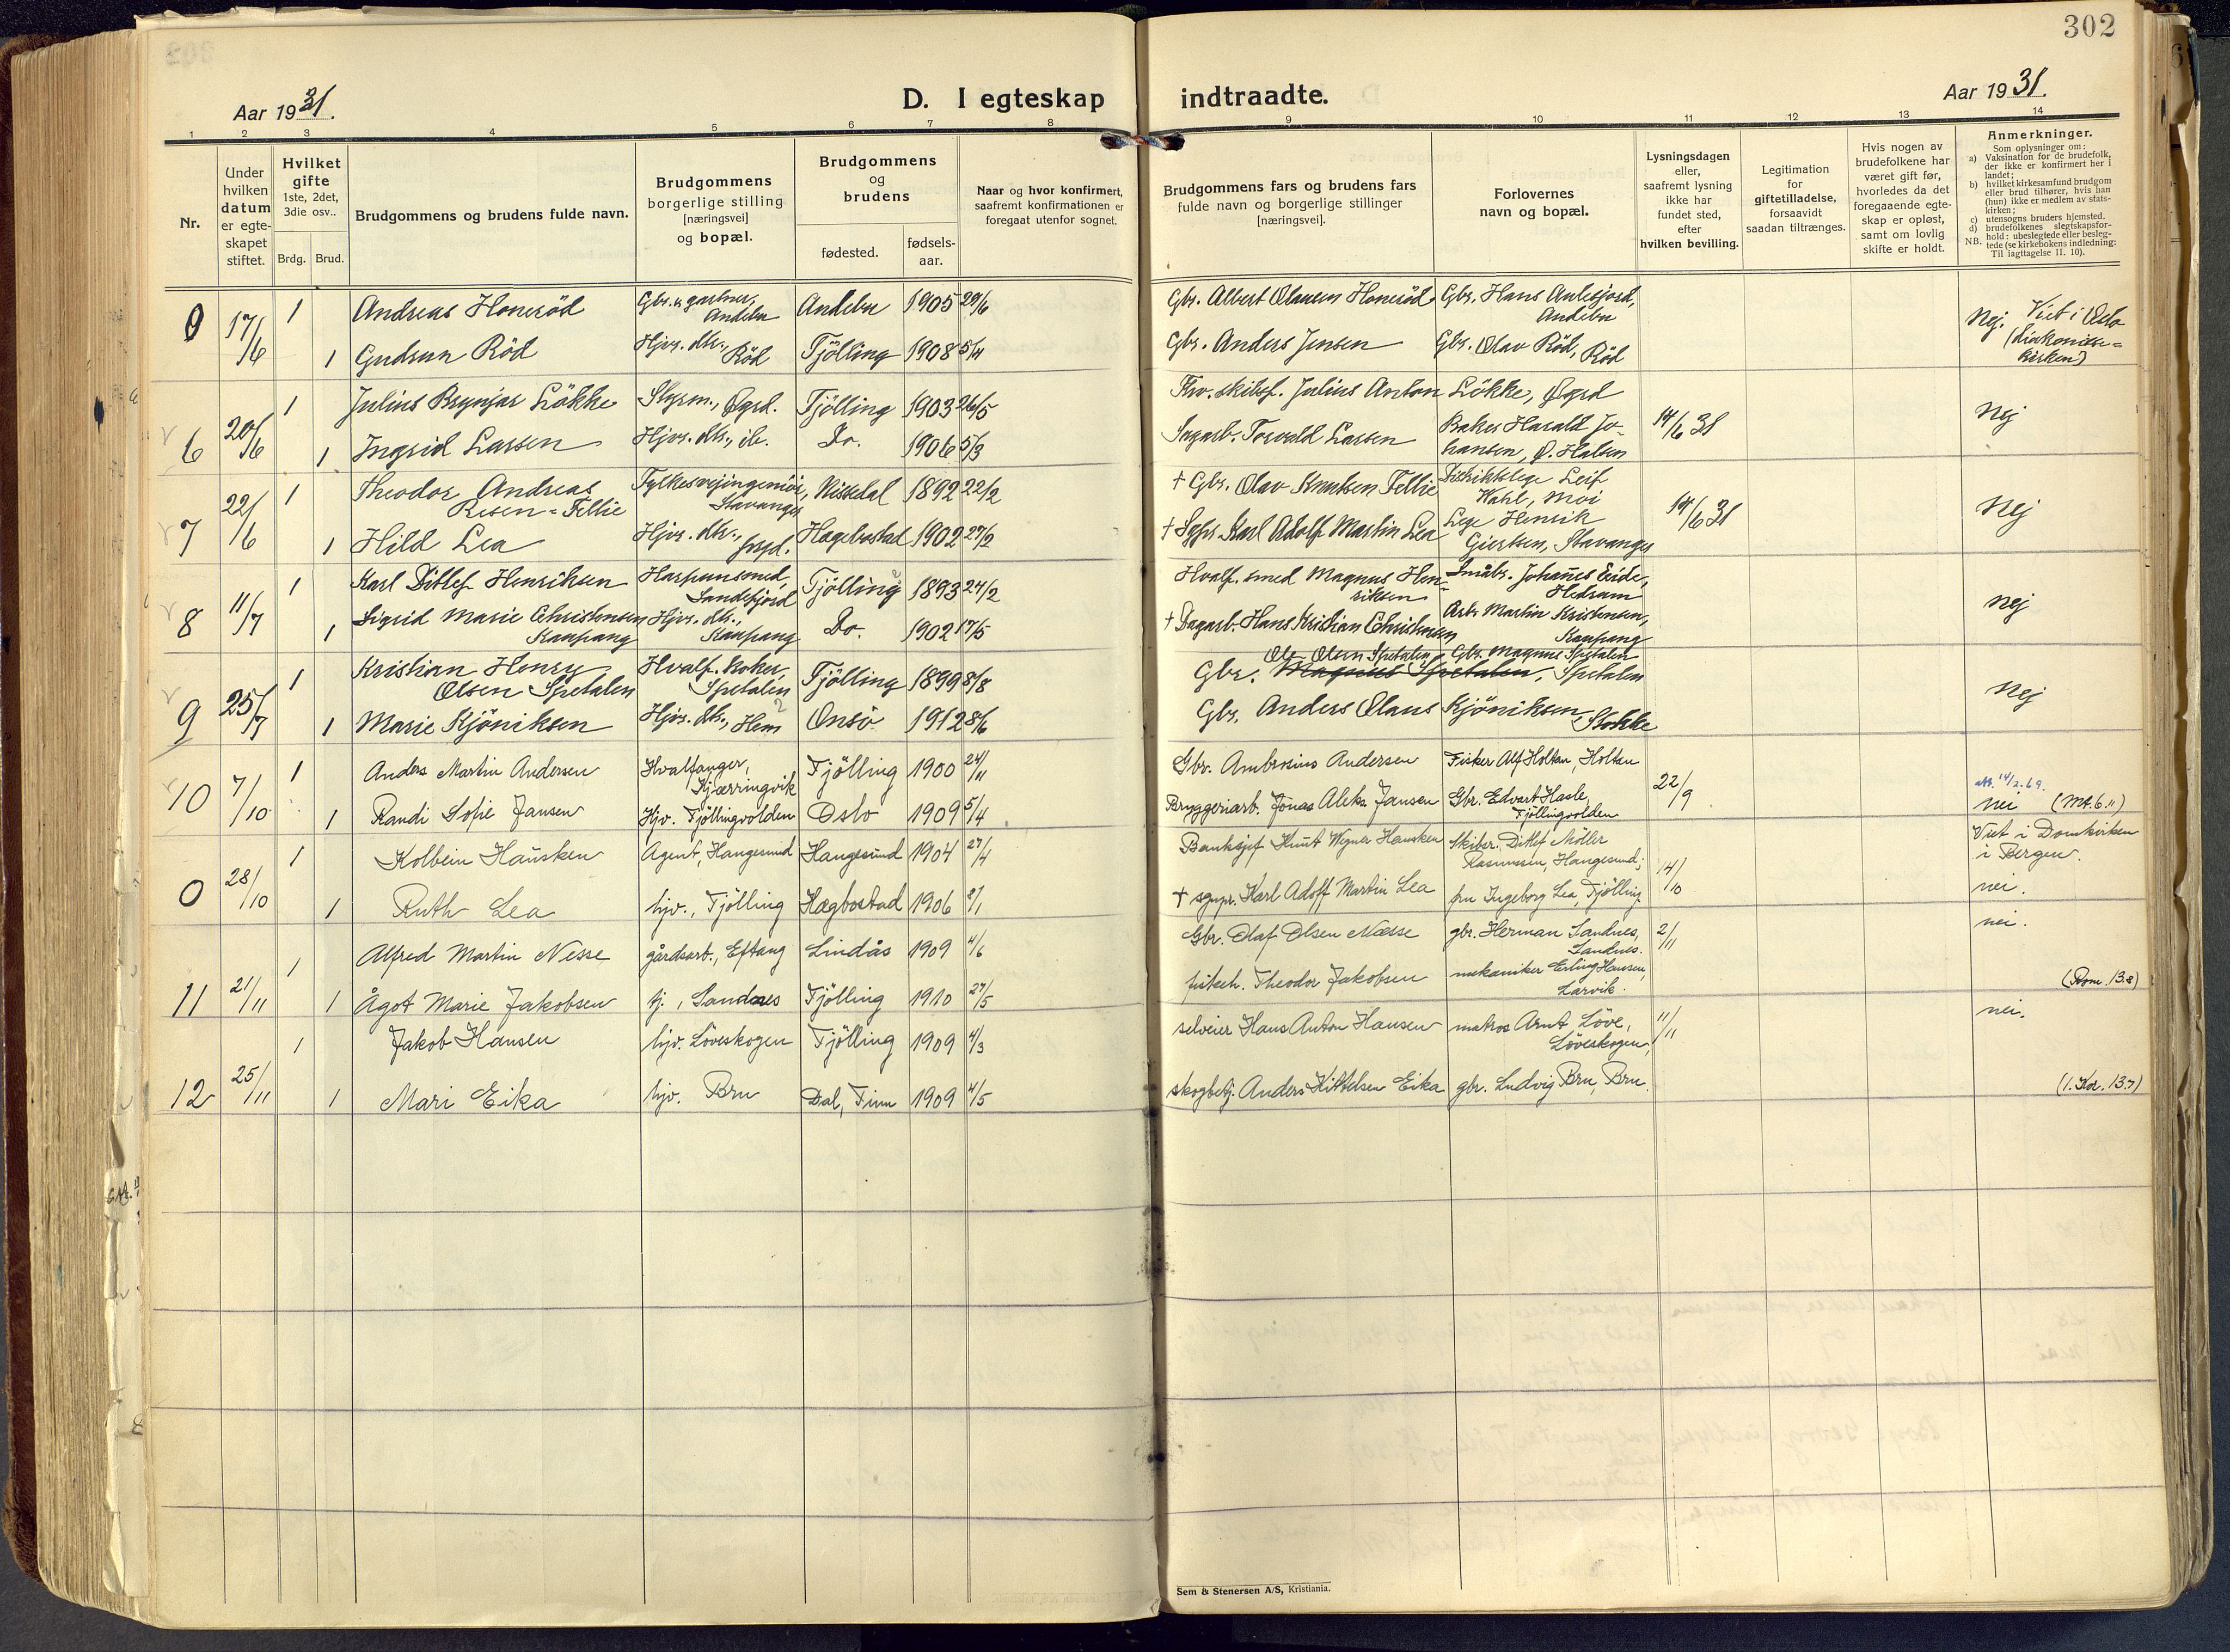 302
Aar 1931.
D. I egteskap indtraadte.
Aar 1931.
1 2 3 4 5 6 7 8 9 10 11 12 13 14
Nr.
Under
hvilken
datum
er egte-
skapet
stiftet.
Hvilket
gifte
1ste, 2det,
3die osv..
Brdg. Brud.
Brudgommens og brudens fulde navn.
Brudgommens
borgerlige stilling
[næringsvei]
og bopæl.
Brudgommens
og
brudens
fødested.
fødsels-
aar.
Naar og hvor konfirmert,
saafremt konfirmationen er
foregaat utenfor sognet.
Brudgommens fars og brudens fars
fulde navn og borgerlige stillinger
[næringsvei].
Forlovernes
navn og bopæl.
Lysningsdagen
eller,
saafremt lysning
ikke har
fundet sted,
efter
hvilken bevilling.
Legitimation
for
giftetilladelse,
forsaavidt
saadan tiltrænges.
Hvis nogen av
brudefolkene har
været gift før,
hvorledes da det
foregaaende egte-
skap er opløst,
samt om lovlig
skifte er holdt.
Anmerkninger.
Som oplysninger om:
a) Vaksination for de brudefolk,
der ikke er konfirmert her i
landet;
b) hvilket kirkesamfund brudgom
eller brud tilhører, hvis han
(hun) ikke er medlem av stats-
kirken;
c) utensogns bruders hjemsted.
d) brudefolkenes slegtskapsfor-
hold: ubeslegtede eller besleg-
NB. tede (se kirkebokens indledning:
Til iagttagelse II. 10).
0 17/6 1 Andreas Honerød Gbr. & gartner, Andebu Andebu 1905 29/6 Gbr. Albert Olausen Honerød Gbr. Hans Anlesjord, Andebu Nej. Viet i Oslo
1 Gudrun Röd Hjvr. dtr., Röd Tjölling 1908 5/4 Gbr. Anders Jensen Gbr. Olav Röd, Röd (diakonisse=kirken)
6 20/6 1 Julius Brynjar Lökke Styrm., Øgrd. Tjölling 1903 26/5 Frv. skibsf. Julius Anton Lökke, Øgrd Nej
1 Ingrid Larsen Hjvr. dtr., ib. Do. 1906 5/3 Sagarb. Torvald Larsen Baker Harald Johansen, Ø. Halsen 14/6 31
7 22/6 1 Theodor Andreas Risen=Tellie Fylkesvejingeniør, Stavanger Nissedal 1892 22/2 † Gbr. Olav Knutsen Tellie Distriktslege Leif Wahl, Moi 14/6 31 Nej
1 Hild Lea Hjvr. dtr., Prgd. Hægebostad 1902 27/2 † Sgpr. Karl Adolf Martin Lea Lege Henrik Giertsen, Stavanger
8 11/7 1 Karl Ditlef Henriksen Harpunsmed, Sandefjord Tjölling 1893 24/2 Hvalf. smed Magnus Henriksen Småbr. Johanes Eide, Hedrum Nej
1 Sigrid Marie Christensen Kaupang Hjvr. dtr., Kaupang Do. 1902 17/5 † Dagarb. Hans Kristian Christensen Arb. Martin Kristensen, Kaupang
9 25/7 1 Kristian Henry Olsen Spetalen Hvalf. koker, Spetalen Tjölling 1899 8/8 Gbr. Ole Olsen Spetalen Magnus Spetalen, Gbr. Magnus Spetalen Spetalen Nej
1 Marie Kjöniksen Hjvr. dtr., Hem Onsö 1912 8/6 Gbr. Anders Olaus Kjöniksen, Stokke
10 7/10 1 Anders Martin Andersen Hvalfanger, Kjærringvik Tjölling 1900 24/11 Gbr. Ambrosius Andersen Fisker Alf Holtan, Holtan 22/9 att. 14/2.69.
1 Randi Sofie Jansen Hjv. Tjöllingvolden Oslo 1909 5/4 Bryggeriarb. Jonas Aleks Jansen Gbr. Edvart Hasle, Tjöllingvolden nei (Mt. 6.11)
0 28/10 1 Kolbein Hausken Agent, Haugesund Haugesund 1904 27/4 Banksjef Knut Wegner Hausken Skibsr. Ditlef Möller Rasmussen, Haugesund; 14/10 Viet i Domkirken i Bergen.
1 Ruth Lea hjv., Tjölling Hægbostad 1906 2/1 † sgnpr. Karl Adolf Martin Lea fru Ingeborg Lea, Tjölling nei.
11 21/11 1 Alfred Martin Nesse gårdsarb., Eftang Lindås 1909 4/6 Gbr. Olaf Olsen Næsse gbr. Herman Sandnes, Sandnes. 2/11 nei.
1 Ågot Marie Jakobsen tj., Sandnes Tjölling 1910 27/5 fiskeh. Theodor Jakobsen mekaniker Erling Hansen, Larvik. (Rom. 13.8)
12 25/11 1 Jakob Hansen hjv. Löveskogen Tjölling 1909 4/3 selveier Hans Anton Hansen matros Arnt Löve, Löveskogen, 11/11 nei.
1 Mari Eika hjv. Bru Dal, Tinn 1909 4/5 skogbetj. Anders Kittelsen Eika gbr. Ludvig Bru, Bru. (1. Kor. 13.7)
Sem & Stenersen A/S, Kristiania.